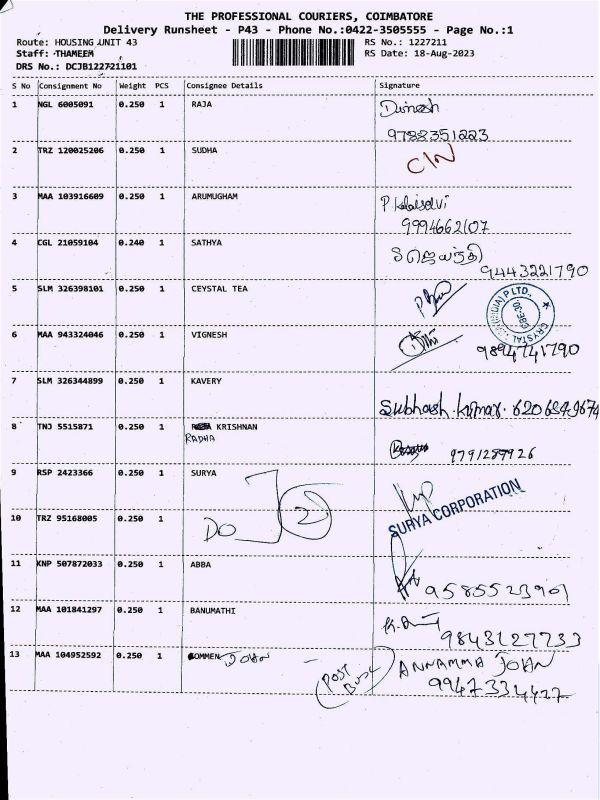 THE PROFESSIONAL COURIERS, COIMBATORE
Delivery Runsheet - P43 - Phone No.:0422-3505555 - Page No.:1
Route: HOUSING UNIT 43
RS No.: 1227211
Staff: THAMEEM
RS Date: 18-Aug-2023
DRS No.: DCJB122721101
S No Consignment No Weight PCS Consignee Details Signature
1 NGL 6005091 0.250 1 RAJA Dinesh
9788351223
2 TRZ 120025206 0.250 1 SUDHA C/N
3 MAA 103916609 0.250 1 ARUMUGHAM P. Kalaiselvi
9994662107
4 CGL 21059104 0.240 1 SATHYA ஜெயந்தி
9443221790
5 SLM 326398101 0.250 1 CEYSTAL TEA
CRYSTAL (INDIA) P LTD.
6 MAA 943324046 0.250 1 VIGNESH
9894741790
7 SLM 326344899 0.250 1 KAVERY
Subhash. kumar.
8 TNJ 5515871 0.250 1 KRISHNAN
RADHA 9791289926
9 RSP 2423366 0.250 1 SURYA
SURYA CORPORATION
10 TRZ 95168005 0.250 1 DO 2
11 KNP 507872033 0.250 1 ABBA
9585523901
12 MAA 101841297 0.250 1 BANUMATHI
9843127733
13 MAA 104952592 0.250 1 OOMMEN JOHN POST BOX ANNAMMA JOHN
9947334427